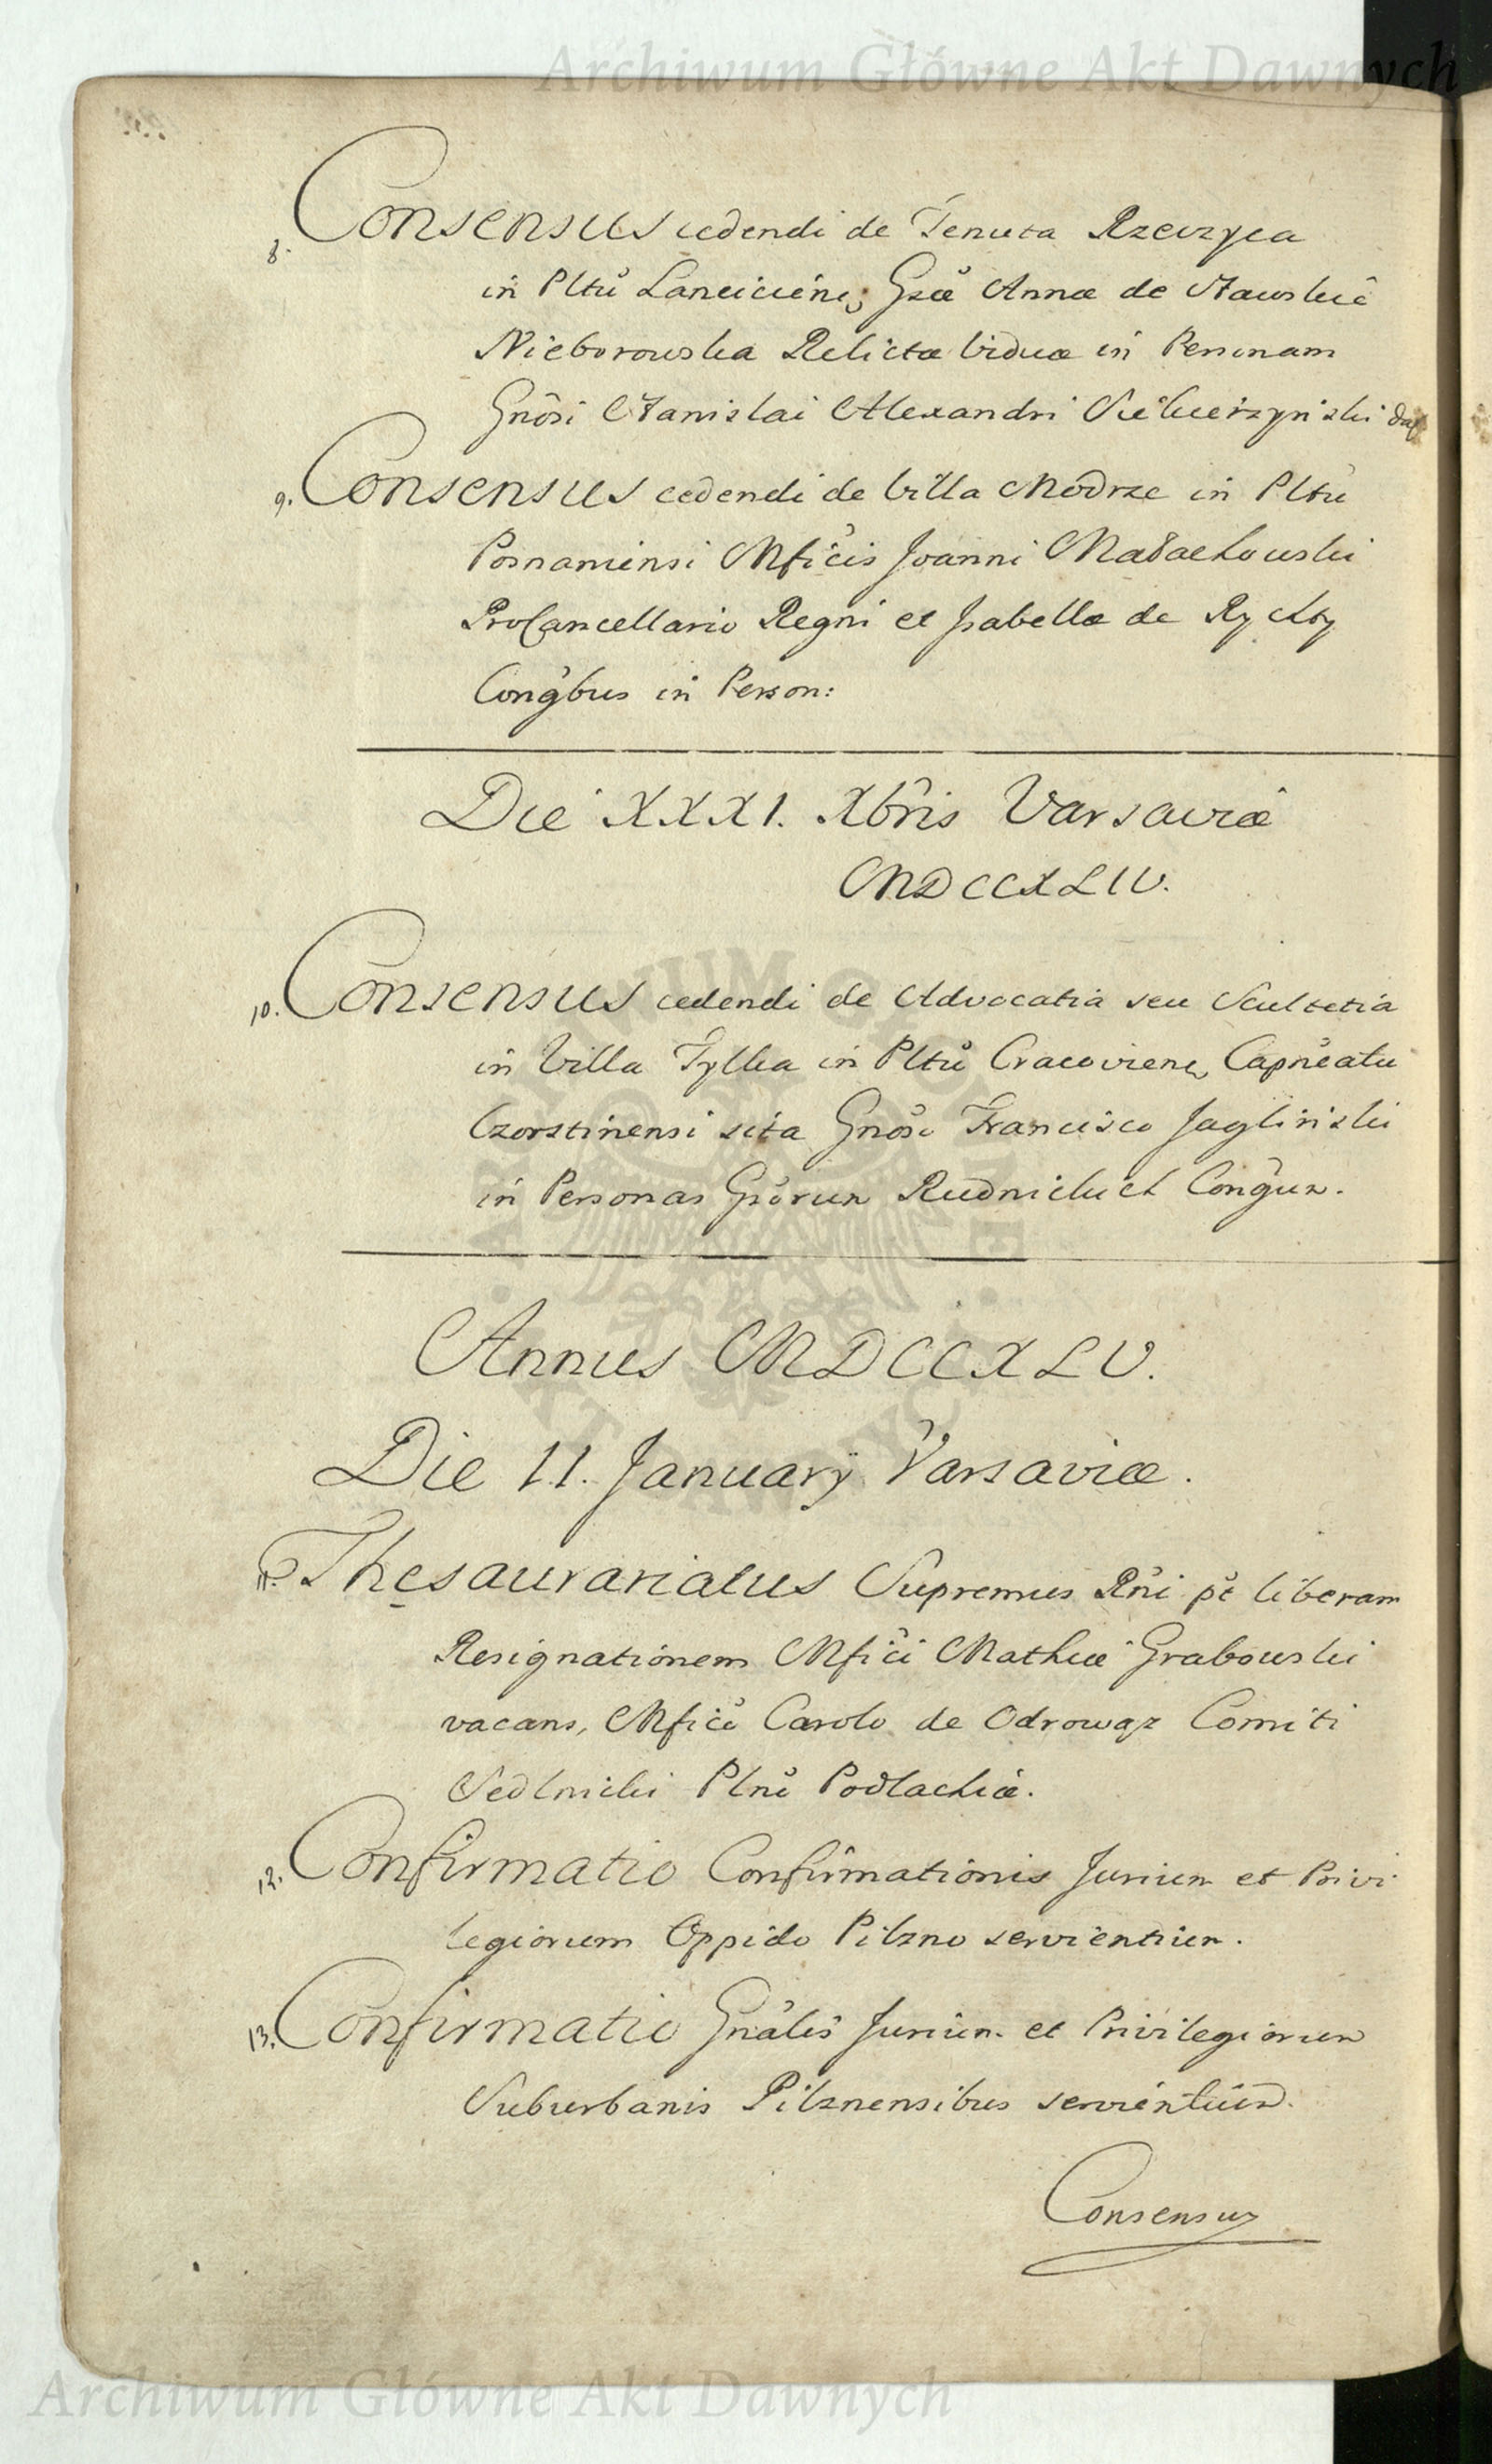 Archiwum Główne Akt Dawnych
8. Consensus cedendi de Tenuta Rzeczyca
in Pltũ Lanciciens, Gsæ Annæ de
Nieborowska Relictæ Viduæ in Personam
Gnõsi Stanislai Alexandri
9. Consensus cedendi de Villa Modrze in Pltũ
Posnaniensi Mficis Joanni Małachowski
ProCancellario Regni et Isabellæ de
Congbus in Person:
Die XXXI. Xbris Varsaviæ
MDCCXLIV.
10. Consensus cedendi de Advocatia seu Scultetia
in Villa Tylka in Pltũ Cracoviens, Capneatu
Czorstinensi sita Gnõso Francisco Jaglinski
in Personas Gsorum Rudnicki et Congum.
Annus MDCCXLV.
Die 11. Januarÿ Varsaviæ.
11. Thesaurariatus Supremus Rni pt liberam
Resignationem Mfici Mathiæ Grabowski
vacans, Mfico Carolo de Odrowąz Comiti
Sedlnicki Plno Podlachiæ.
12. Confirmatio Confirmationis Jurium et Privi
legiorum Oppido Pilzno servientium.
13. Confirmatio Gnalis Jurium et Privilegiorum
Suburbanis Pilznensibus servientium.
Consensus
Archiwum Główne Akt Dawnych